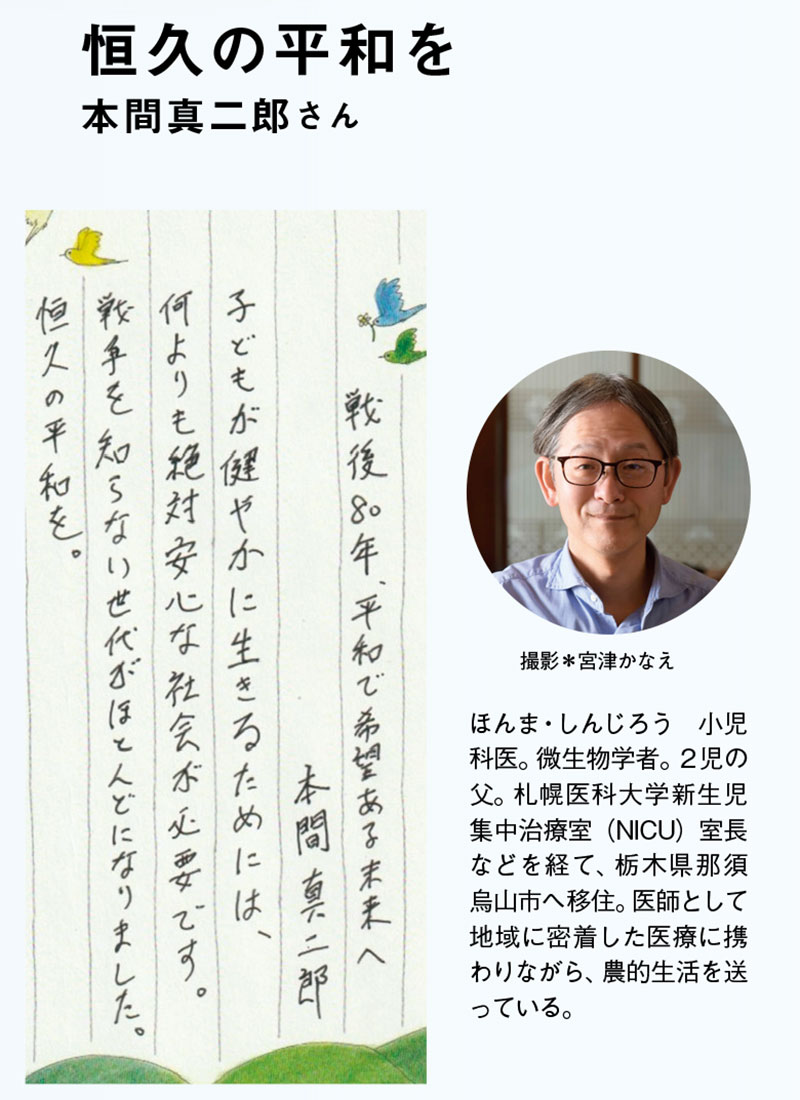 恒久の平和を
本間真二郎さん
戦後80年、平和で希望ある未来へ
本間真二郎
子どもが健やかに生きるためには、
何よりも絶対安心な社会が必要です。
戦争を知らない世代がほとんどになりました。
恒久の平和を。
撮影＊宮津かなえ
ほんま・しんじろう　小児
科医。微生物学者。２児の
父。札幌医科大学新生児
集中治療室（NICU）室長
などを経て、栃木県那須
烏山市へ移住。医師として
地域に密着した医療に携
わりながら、農的生活を送
っている。